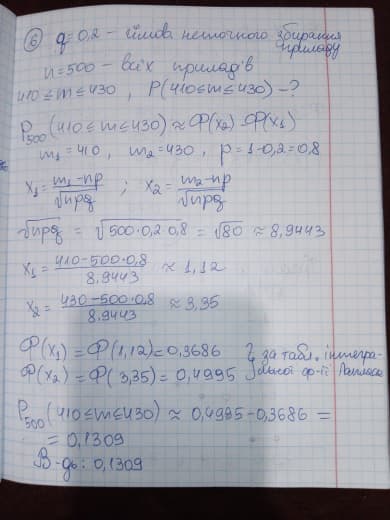 ⑥ q=0,2 – ймов неточного збирання
приладу
n=500 – всіх приладів
410≤m≤430, P(410≤m≤430)–?
P₅₀₀(410≤m≤430)≈Φ(x₂)-Φ(x₁)
m₁=410, m₂=430, p=1-0,2=0,8
x₁=(m₁-np)/√npq ; x₂=(m₂-np)/√npq
√npq = √500·0,2·0,8 = √80 ≈ 8,9443
x₁=(410-500·0,8)/8,9443 ≈ 1,12
x₂=(430-500·0,8)/8,9443 ≈ 3,35
Φ(x₁)=Φ(1,12)=0,3686 } за табл. інтегра-
Φ(x₂)=Φ(3,35)=0,4995 льної ф-ії Лапласа
P₅₀₀(410≤m≤430)≈0,4995-0,3686=
=0,1309
В-дь: 0,1309